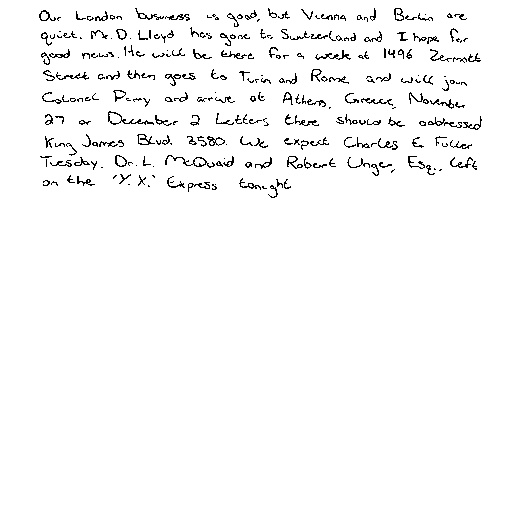 Our London business is good, but Vienna and Berlin are
quiet. Mr. D. Lloyd has gone to Switzerland and I hope for
good news. He will be there for a week at 1496 Zermott
Street and then goes to Turin and Rome and will join
Colonel Parry and arrive at Athens, Greece, November
27 or December 2 Letters there should be addressed
King James Blvd. 3580. We expect Charles E. Fuller
Tuesday. Dr. L. McQuaid and Robert Unger, Esq., left
on the 'Y. X.' Express tonight